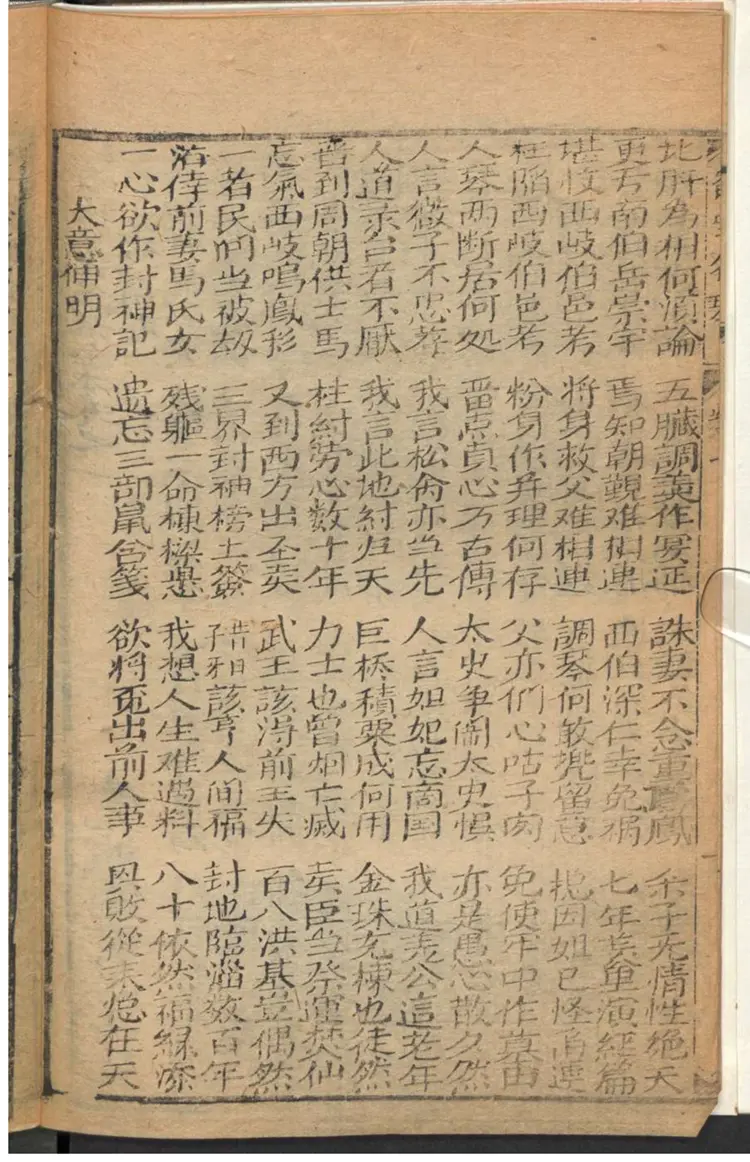 比肝為相何須論 五臟調羮作宴延 誅妻不念重 鳳 杀子无情性絶天
更有南伯岳崇宇 焉知朝覲难相連 西伯深仁幸免祸 七年羑里演經篇
堪忮西岐伯邑考 将身救父难相連 調琴何敢 留意 因妲己怪 連
枉陷西岐伯邑考 粉身作弁理何存 父亦们心咕子肉 免使牢中作莫由
人琴两断居何処 畄点貞心万古傳 太史争闹太史慎 亦是愚忠散夕然
人言微子不忠孝 我言松侖亦当先 人言妲妃忘商囯 我道姜公這老年
人道录台看不厭 我言此地紂归天 巨桥積粟成何用 金珠充棟也徒然
普到周朝供士馬 枉紂劳心数十年 力士也曾烟亡滅 奂臣当祭運焚仙
忘氣西岐鳴鳳彩 又到西方出圣奂 武王該淂前王失 百八洪基豈偶然
一若民间当被刼 三界封神榜上簽 昔日子牙該亨人间福 封地臨淄数百年
 倖前妻馬氏女 残軀一命棟樑悬 我想人生难過料 八十依然福緑
一心欲作封神記 遺忘三部 笺 欲将冤出前人事 興敗從来总在天
大意伸明